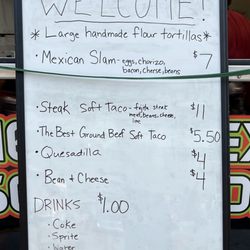 WELCOME!
*Large handmade flour tortillas*
• Mexican Slam - eggs, chorizo, $7
bacon, cheese, beans
• Steak Soft Taco - fajita steak $11
meat, beans, cheese,
• The Best Ground Beef Soft Taco $5.50
• Quesadilla $4
• Bean & Cheese $4
DRINKS $1.00
• Coke
• Sprite
• Water